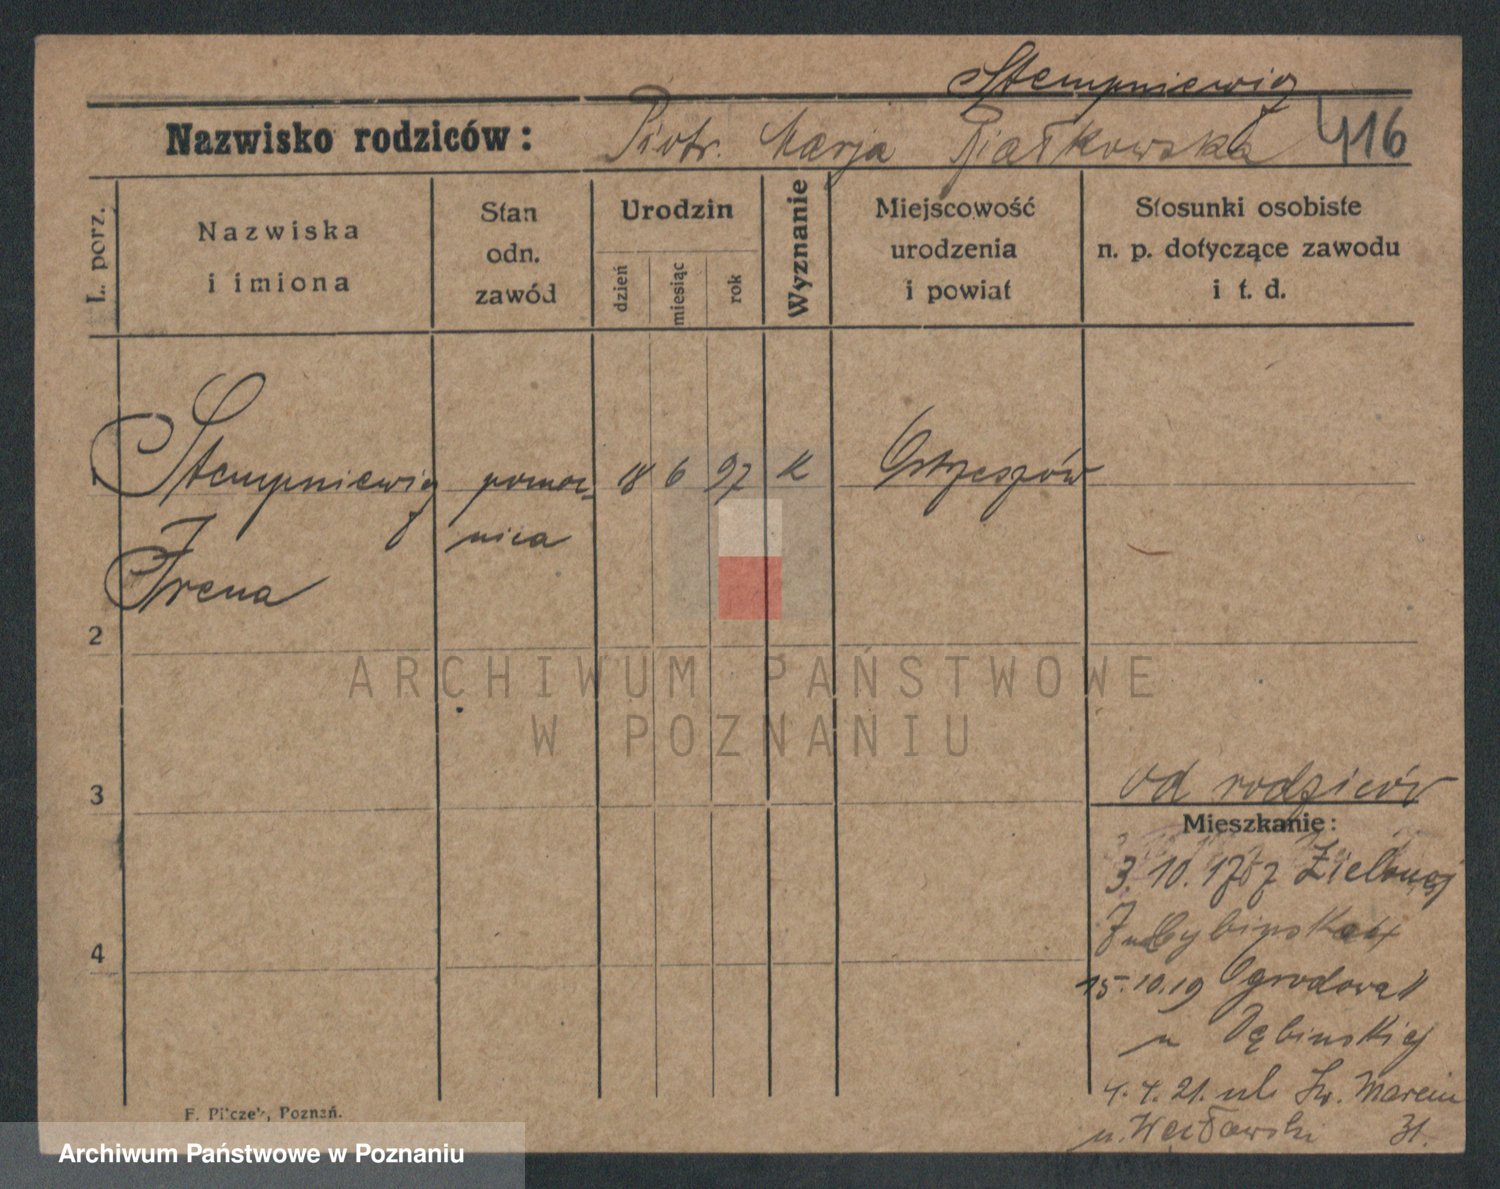 Stempniewicz
Nazwisko rodziców: Piotr. Marja Piałkowska 416
L. porz.
Nazwiska
i imiona
Stan
odn.
zawód
Urodzin
dzień
miesiąc
rok
Wyznanie
Miejscowość
urodzenia
i powiat
Stosunki osobiste
n. p. dotyczące zawodu
i t. d.
1 Stempniewicz pomoc- 18 6 97 k Ostrzeszów
nica
Irena
2
3
4
od rodziców
Mieszkanie:
3. 10. Zielonej
15.10.19 Ogrodowa 1
u Dębinskiej
4. 4. 21. ul. Św. Marcin
u. 31.
F. Pilczek, Poznań.
ARCHIWUM PAŃSTWOWE
W POZNANIU
Archiwum Państwowe w Poznaniu